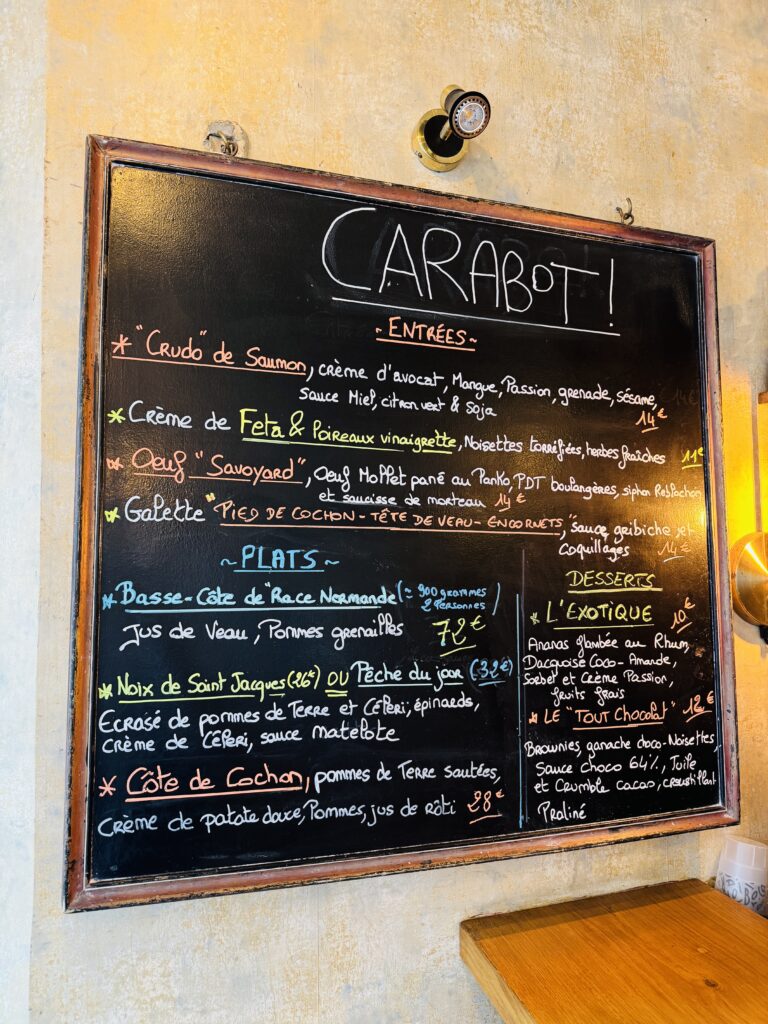 CARABOT!
~ ENTRÉES ~
* "Crudo" de Saumon, crème d'avocat, Mangue, Passion, grenade, sésame,
sauce Miel, citron vert & Soja 14€
* Crème de Feta & Poireaux vinaigrette, Noisettes torréfiées, herbes fraîches 11€
* Oeuf "Savoyard", Oeuf Mollet pané au Panko, PDT boulangères, siphon Reblochon
et saucisse de morteau 14€
* Galette "PIED DE COCHON - TÊTE DE VEAU - ENCORNETS", sauce gribiche et
coquillages 14€
~ PLATS ~
* Basse-Côte de "Race Normande" (≃ 900 grammes
2 Personnes)
Jus de Veau, Pommes grenailles 72€
* Noix de Saint Jacques (26€) OU Pêche du jour (32€)
Ecrasé de pommes de Terre et Céleri, épinards,
crème de Céleri, sauce matelote
* Côte de Cochon, pommes de Terre sautées,
crème de patate douce, Pommes, jus de rôti 28€
DESSERTS
* L'EXOTIQUE 10€
Ananas flambée au Rhum,
Dacquoise Coco - Amande,
Sorbet et Crème Passion,
fruits frais
* LE "TOUT Chocolat" 12€
Brownies, ganache choco-Noisettes,
Sauce choco 64%, Tuile
et Crumble cacao, croustillant
Praliné